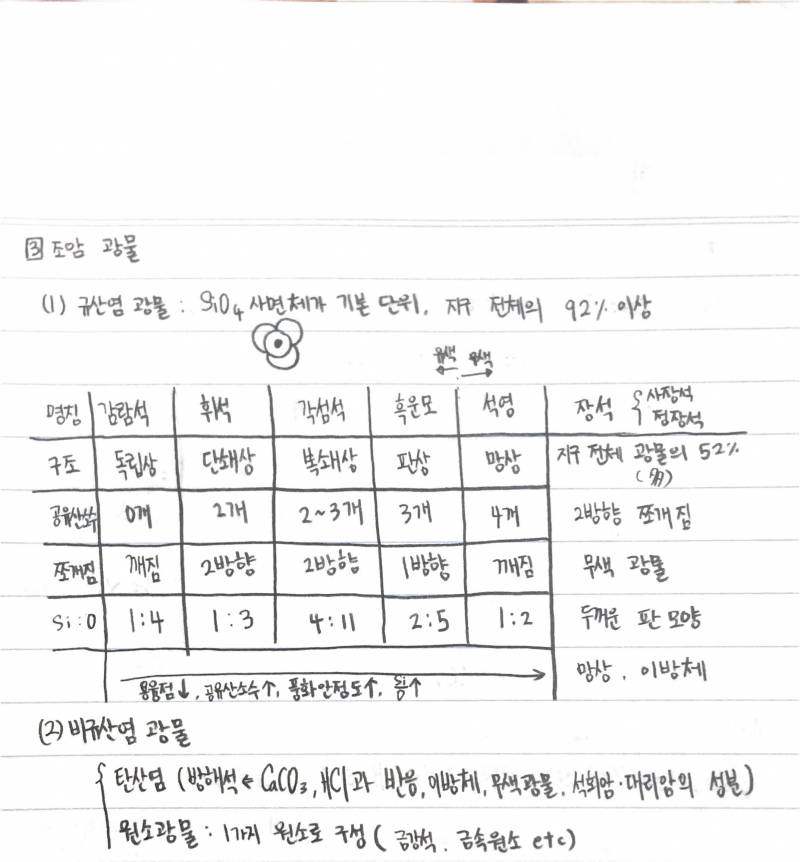 ③ 조암 광물
(1) 규산염 광물 : SiO₄ 사면체가 기본 단위, 지구 전체의 92% 이상
유색 무색
명칭 감람석 휘석 각섬석 흑운모 석영 장석 { 사장석 정장석
구조 독립상 단쇄상 복쇄상 판상 망상 지구 전체 광물의 52% (多)
공유산소수 0개 2개 2~3개 3개 4개 2방향 쪼개짐
쪼개짐 깨짐 2방향 2방향 1방향 깨짐 무색 광물
Si:O 1:4 1:3 4:11 2:5 1:2 두꺼운 판 모양
망상, 이방체
용융점↓, 공유산소수↑, 풍화안정도↑, Si/O↑
(2) 비규산염 광물
{ 탄산염 (방해석 ← CaCO₃, HCl과 반응, 이방체, 무색광물, 석회암·대리암의 성분)
원소광물 : 1가지 원소로 구성 ( 금강석, 금속원소 etc)